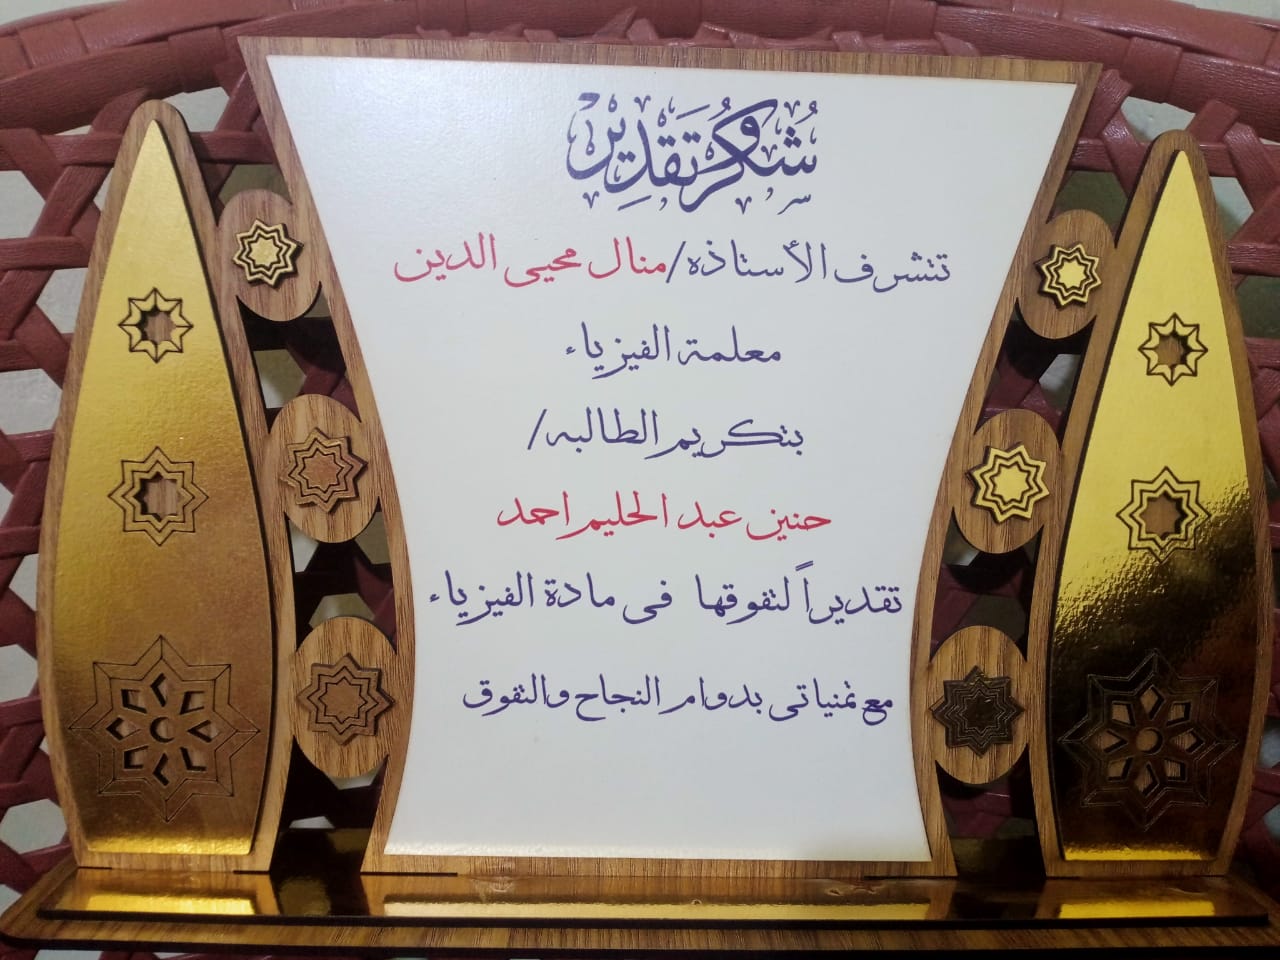 شكر وتقدير
تتشرف الأستاذه/منال محيى الدين
معلمة الفيزياء
بتكريم الطالبه/
حنين عبد الحليم احمد
تقديراً لتفوقها فى مادة الفيزياء
مع تمنياتى بدوام النجاح والتفوق